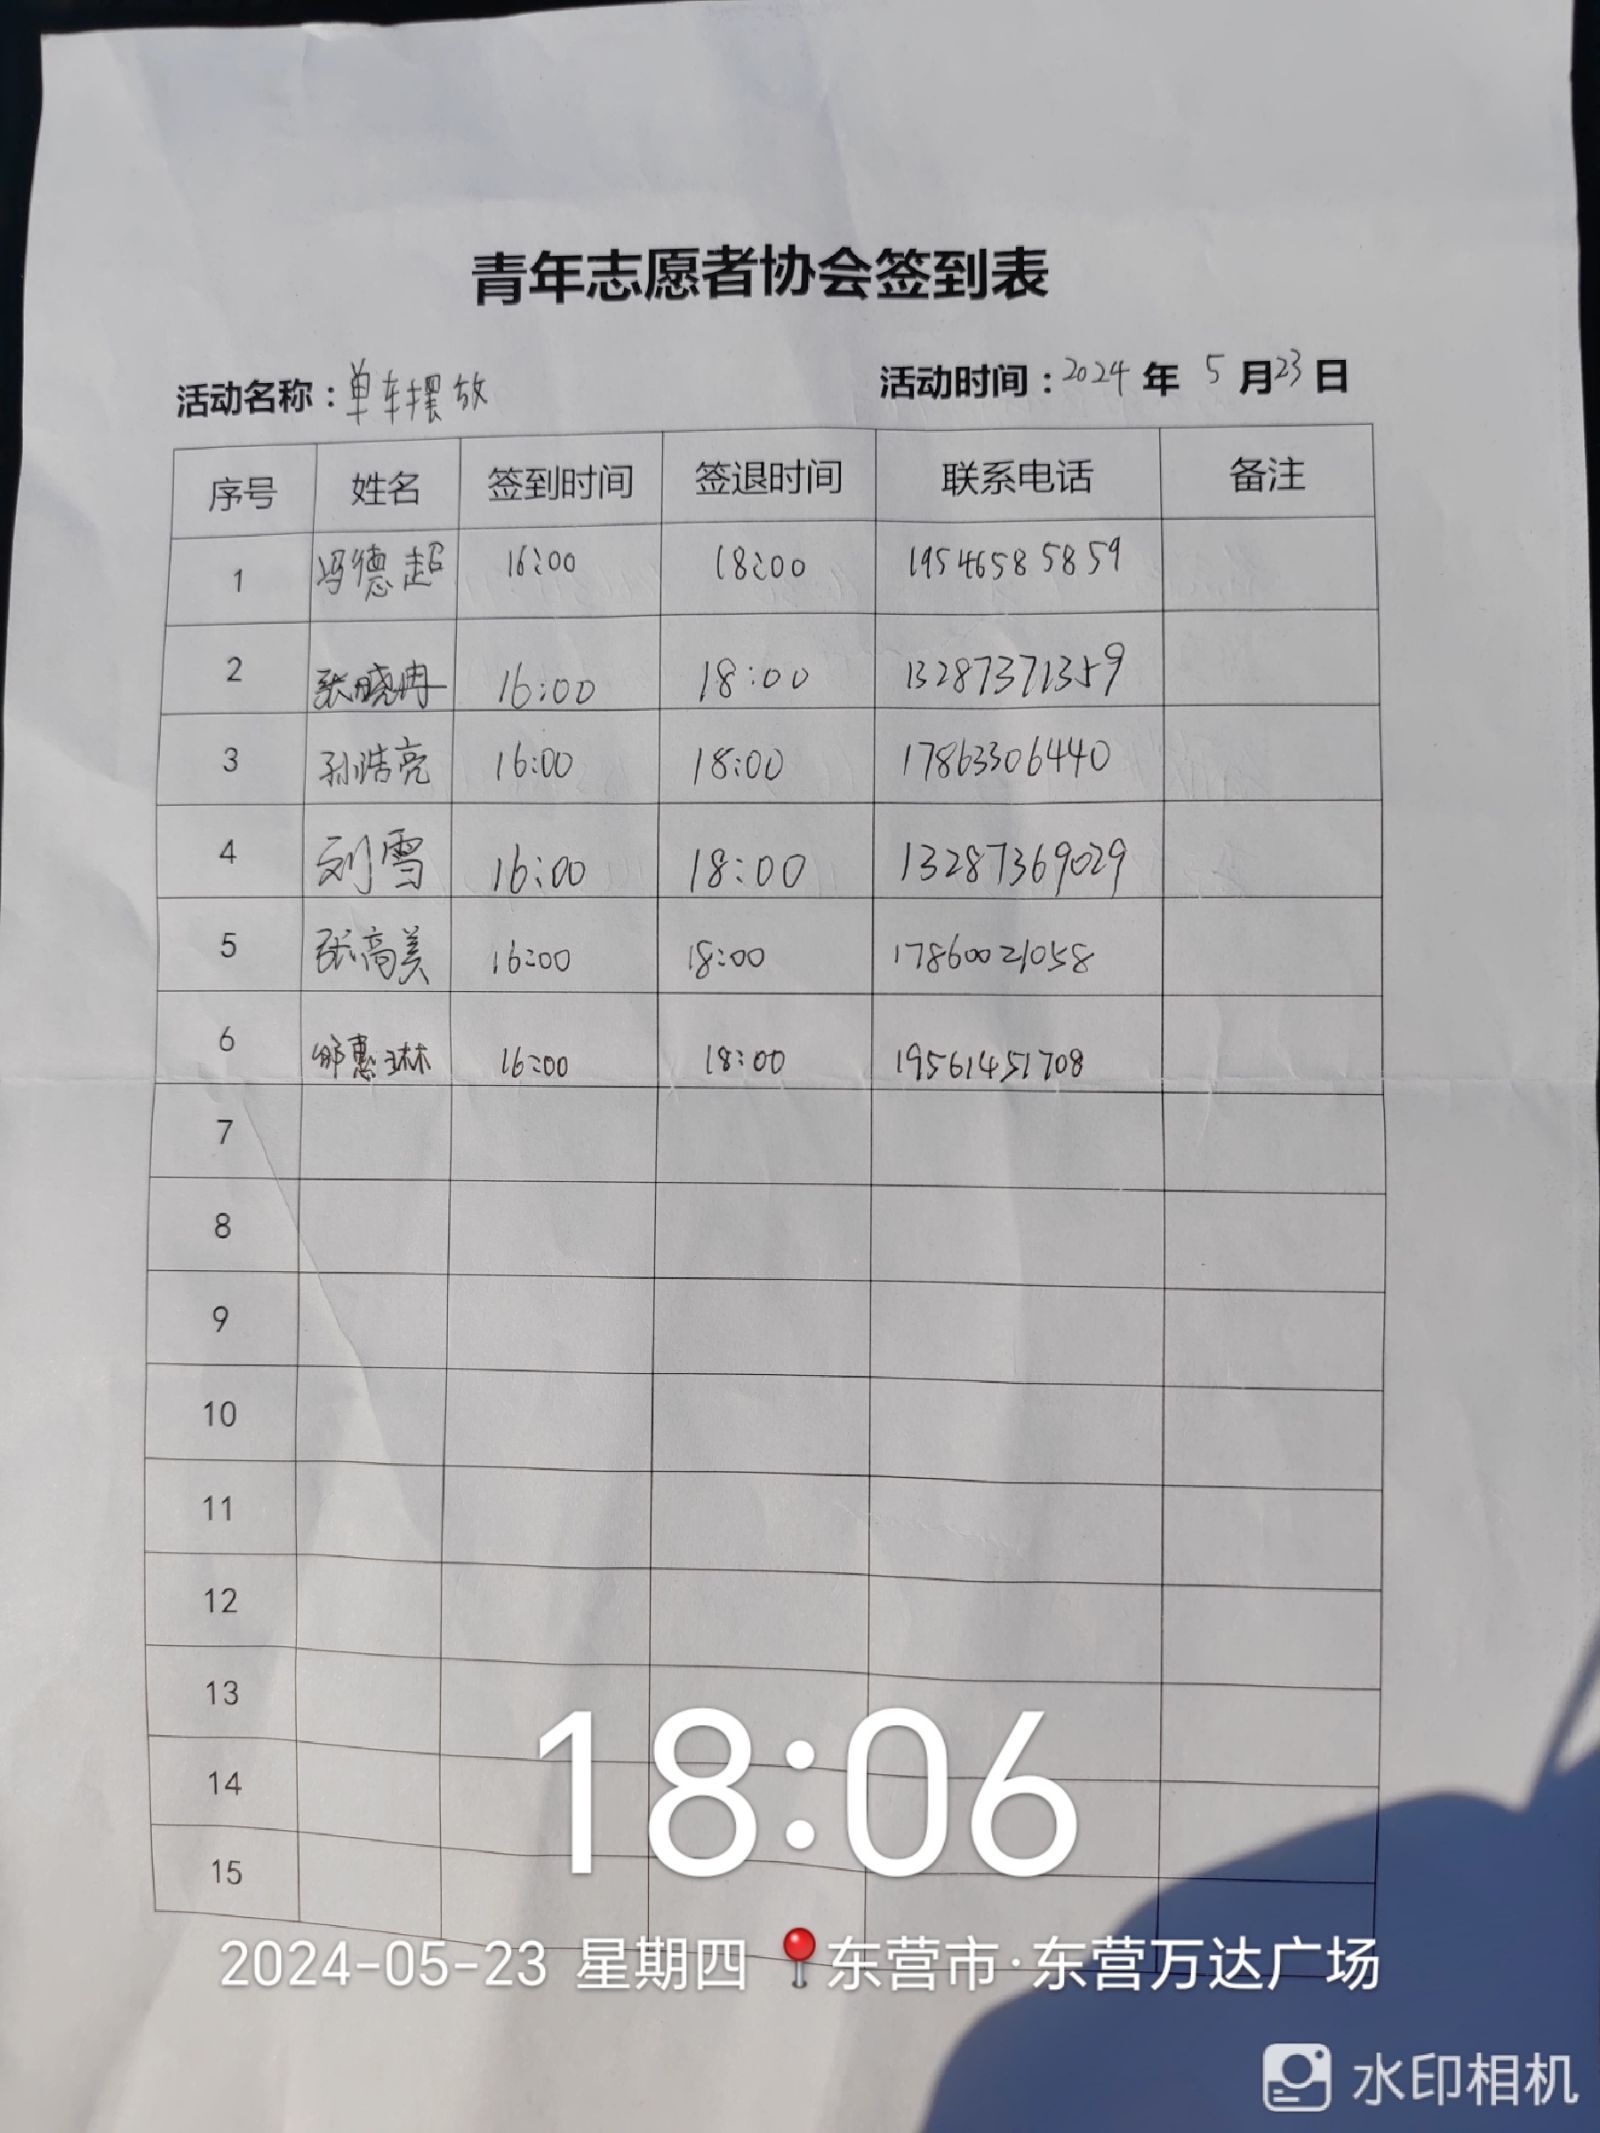 青年志愿者协会签到表
活动名称：单车摆放 活动时间：2024 年 5 月 23 日
序号 姓名 签到时间 签退时间 联系电话 备注
1 冯德超 16:00 18:00 19546585859
2 张晓冉 16:00 18:00 13287371359
3 孙浩亮 16:00 18:00 17863306440
4 刘雪 16:00 18:00 13287369029
5 张高美 16:00 18:00 17860021058
6 16:00 18:00 19561451708
7
8
9
10
11
12
13
14
15
18:06
2024-05-23 星期四 东营市·东营万达广场
水印相机